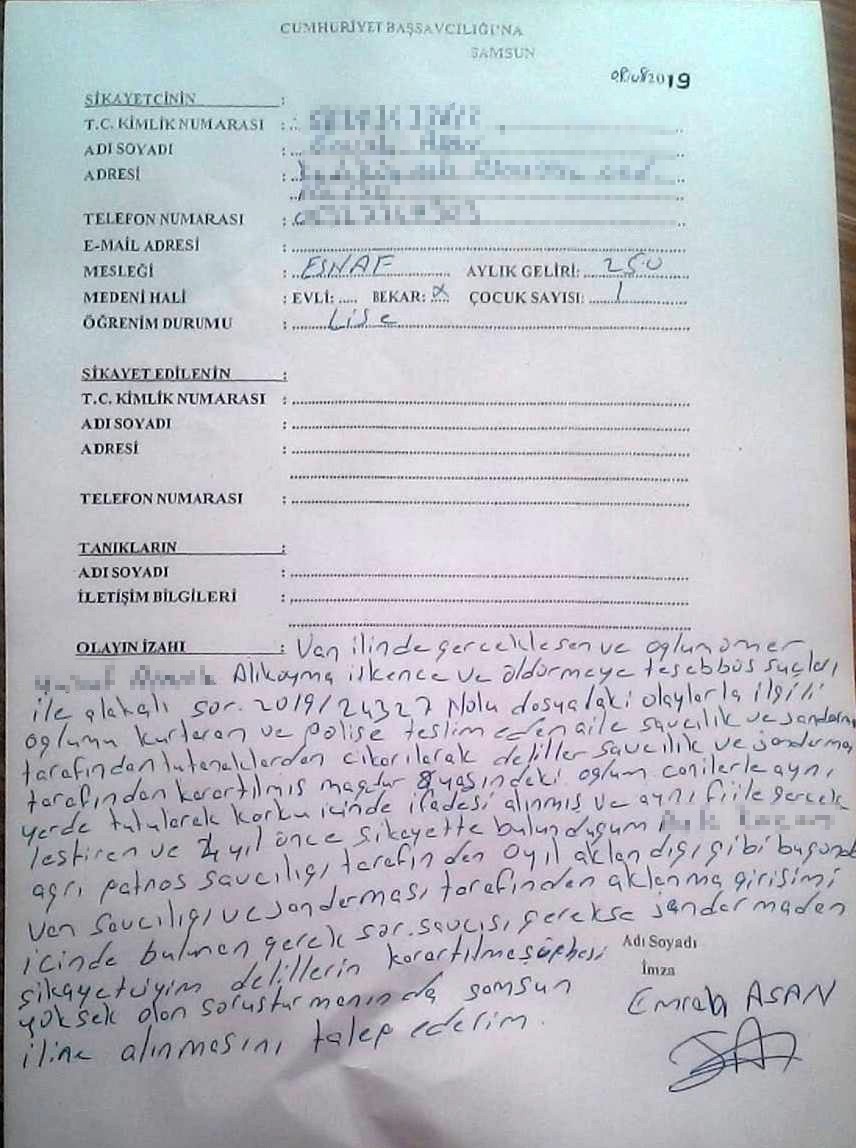 CUMHURİYET BAŞSAVCILIĞI'NA
SAMSUN
08/08/2019
ŞİKAYETCİNİN :
T.C. KİMLİK NUMARASI :
ADI SOYADI :
ADRESİ :
TELEFON NUMARASI :
E-MAIL ADRESİ :
MESLEĞİ : ESNAF AYLIK GELİRİ: 250
MEDENİ HALİ : EVLİ: ..... BEKAR: X ÇOCUK SAYISI: 1
ÖĞRENİM DURUMU : Lise
ŞİKAYET EDİLENİN :
T.C. KİMLİK NUMARASI :
ADI SOYADI :
ADRESİ :
TELEFON NUMARASI :
TANIKLARIN :
ADI SOYADI :
İLETİŞİM BİLGİLERİ :
OLAYIN İZAHI : Van ilinde gerceklesen ve oglum ömer
Alikoyma işkence ve öldürmeye teşebbüs suçları
ile alakalı sor. 2019/24327 Nolu dosyadaki olaylarla ilgili
oglumu kurtaran ve polise teslim eden aile savcılık ve jandarma
tarafından tutanaklardan cikarılarak deliller savcılık ve jandarma
tarafından karartılmış magdur 8 yasındeki oglum canilerle aynı
yerde tutularak korku icinde ifadesi alınmış ve aynı fiile gercek
leştiren ve 4 yıl önce şikayette bulundugum
agrı patnos savcılıgı tarafından o yıl aklandıgı gibi bugünde
Van savcılıgı ve jandarması tarafından aklanma girişimi
icinde bulunan gerek sor. savcısı gerekse jandarmadan
şikayetciyim delillerin karartılma şüphesi
yüksek olan soruşturmanında samsun
iline alınmasını talep ederim.
Adı Soyadı
İmza
Emrah ASAN